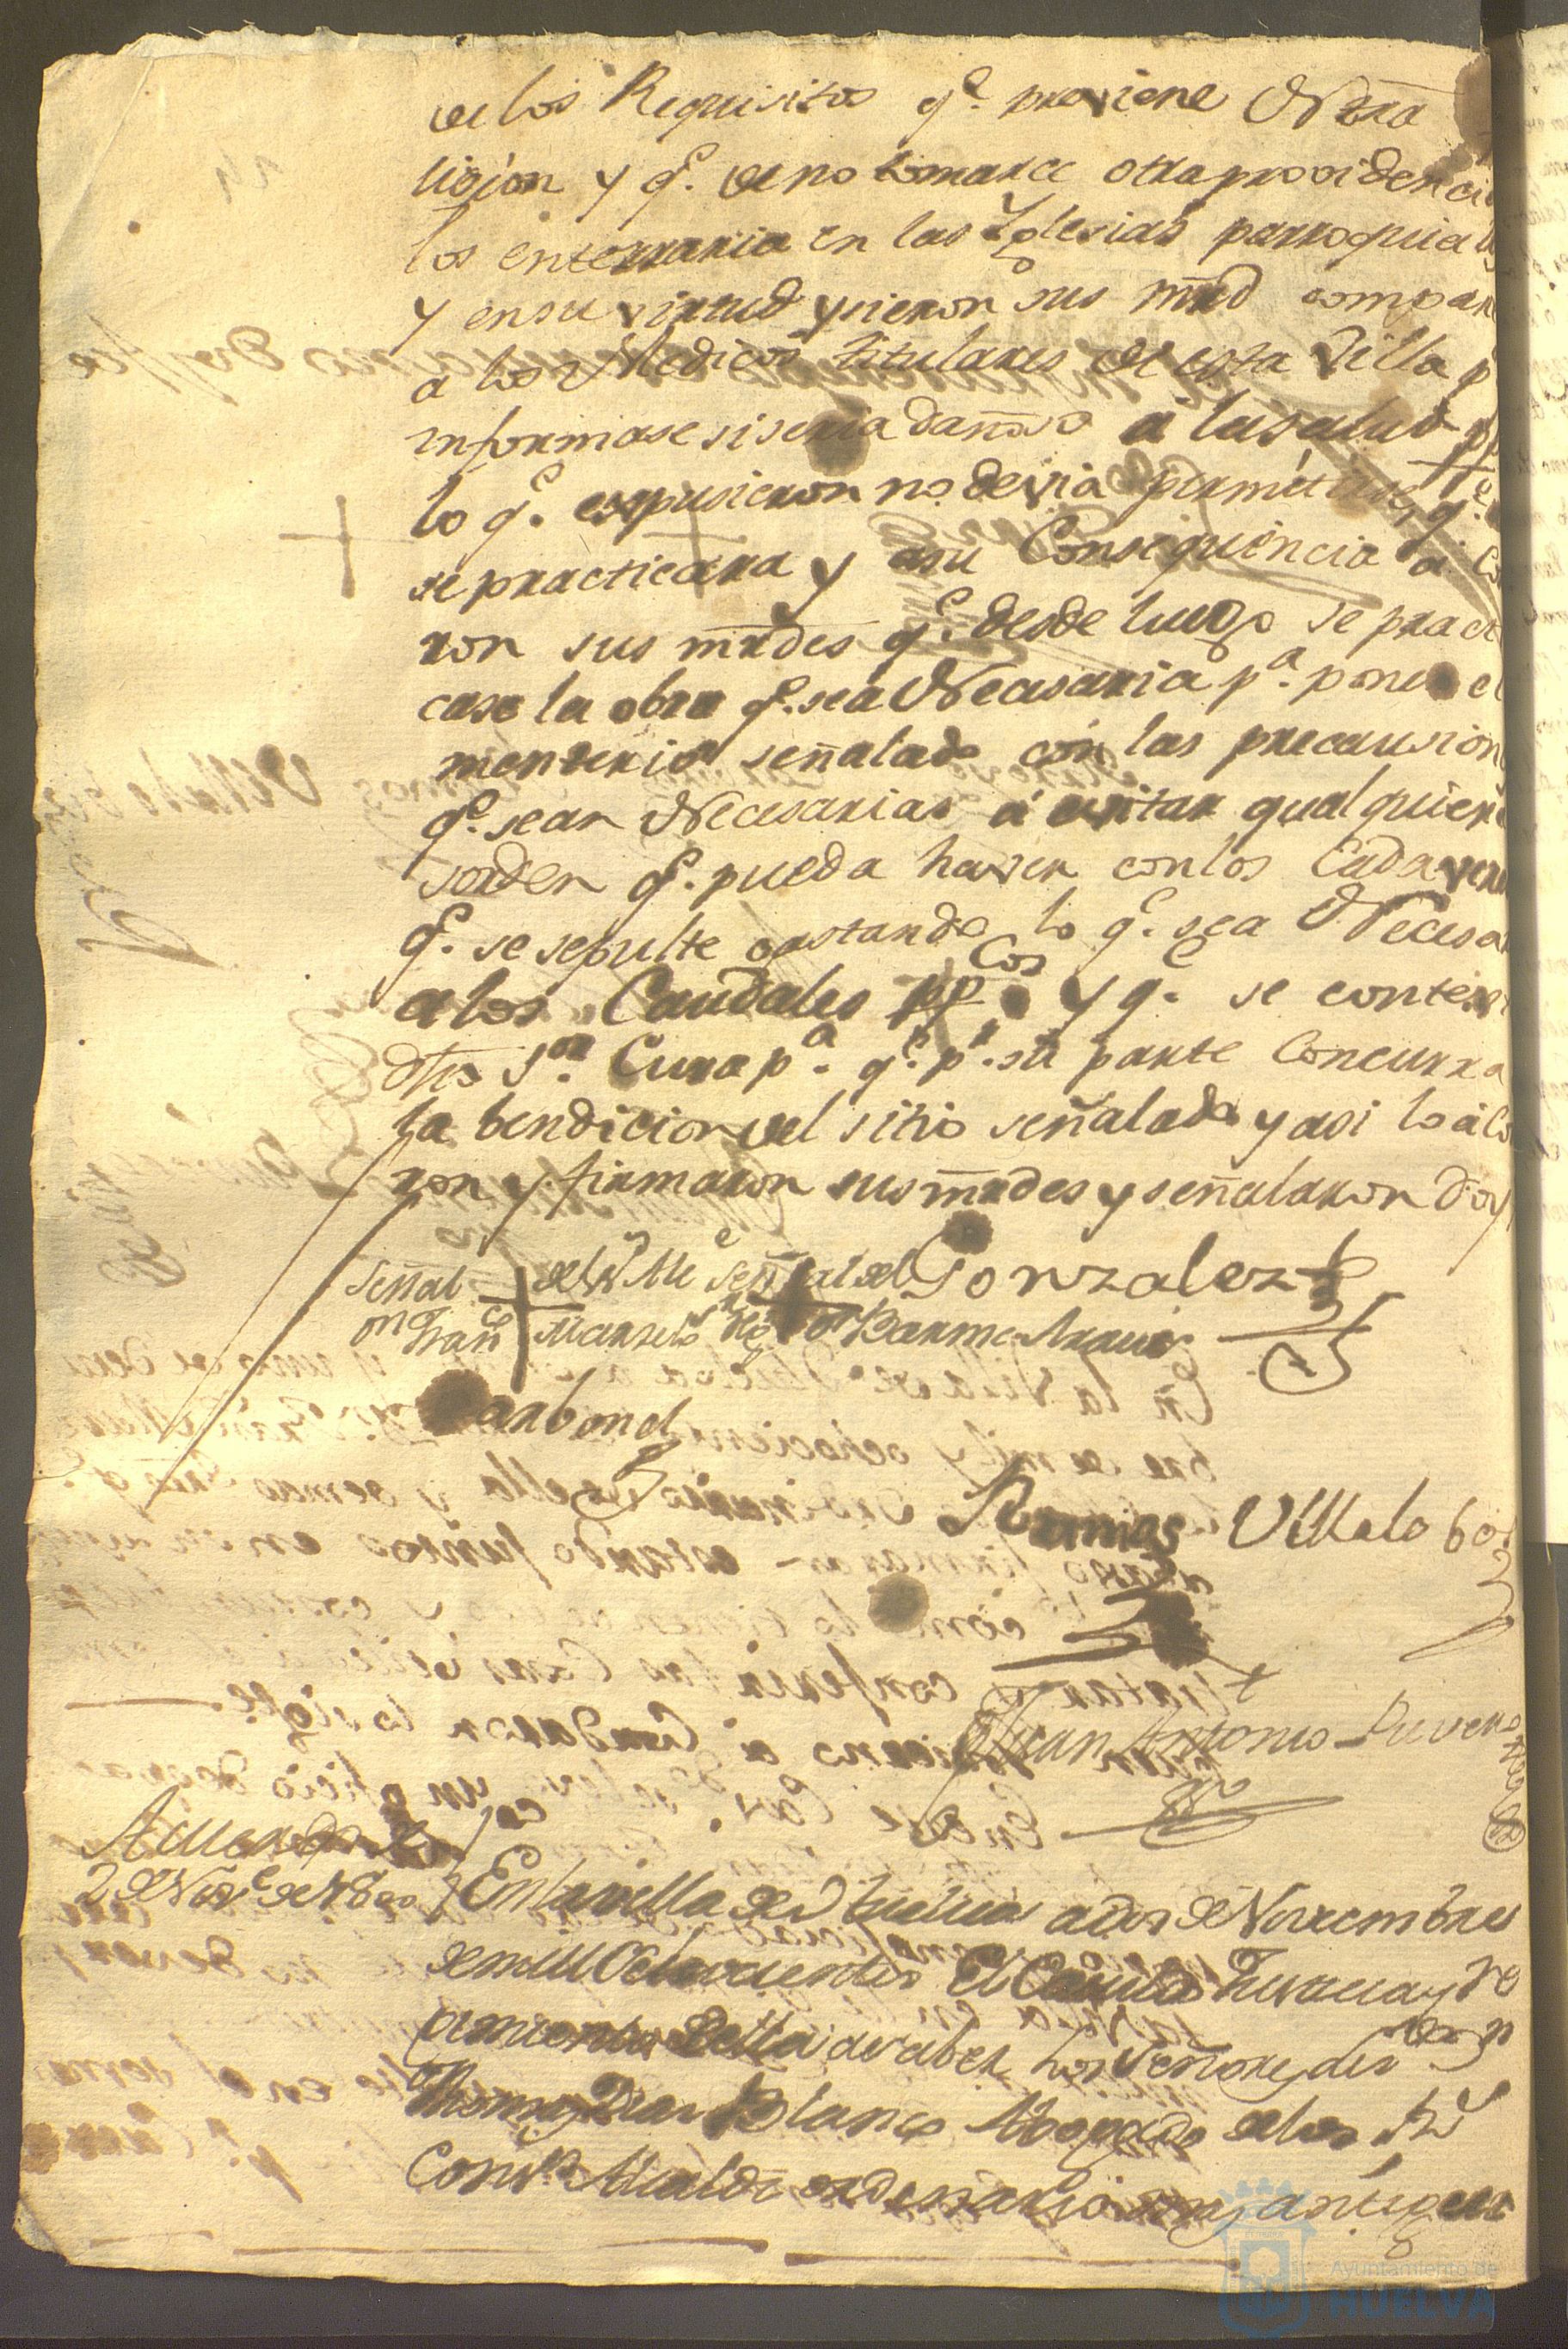 de los Requisitos q.e previene Ntra
ligion y q.e de no tomarce otra providenci
los enterraria en las Yglesias parroquial
y en su virtud ysieron sus mrd compar
a los Medicos titulares de esta Villa p
informase si seria dañoso a la salud pp
lo q.e expusieron no devia permitirse, q.e
se practicara y asu Consequencia a co
ron sus mrdes q.e desde luego se pract
case la obra q.e sea Necesaria p.a poner el
menterio señalado con las precausion
q.e sean Necesarias á evitar qualquier
sorden q.e pueda haver con los Cadavere
q.e se sepulte costando lo q.e sea Necesa
a los Caudales pp.cos y q.e se contex
dhos S.or Cura p.a q.e p.r su parte Concurra
la bendicion del sitio señalado y asi lo aco
ron y firmaron sus mrdes y señalaron doy
Señal del Alle Señal del Gonzalez
Fran Marselo
Carbonel
Ramos Villalobos
Juan Antonio Rivero
Acuerdo de
2 de Nov.e de 1800 En la villa de Huelva a dos de Noviembre
de mill Ochocientos El Consejo Justicia y Re
jimiento della a saber los Señores lizd.o D.n
Thomas Diaz Blanco Abogado de los R.s
Consejos Alcalde ordenario mas antiguo
Ayuntamiento de
HUELVA